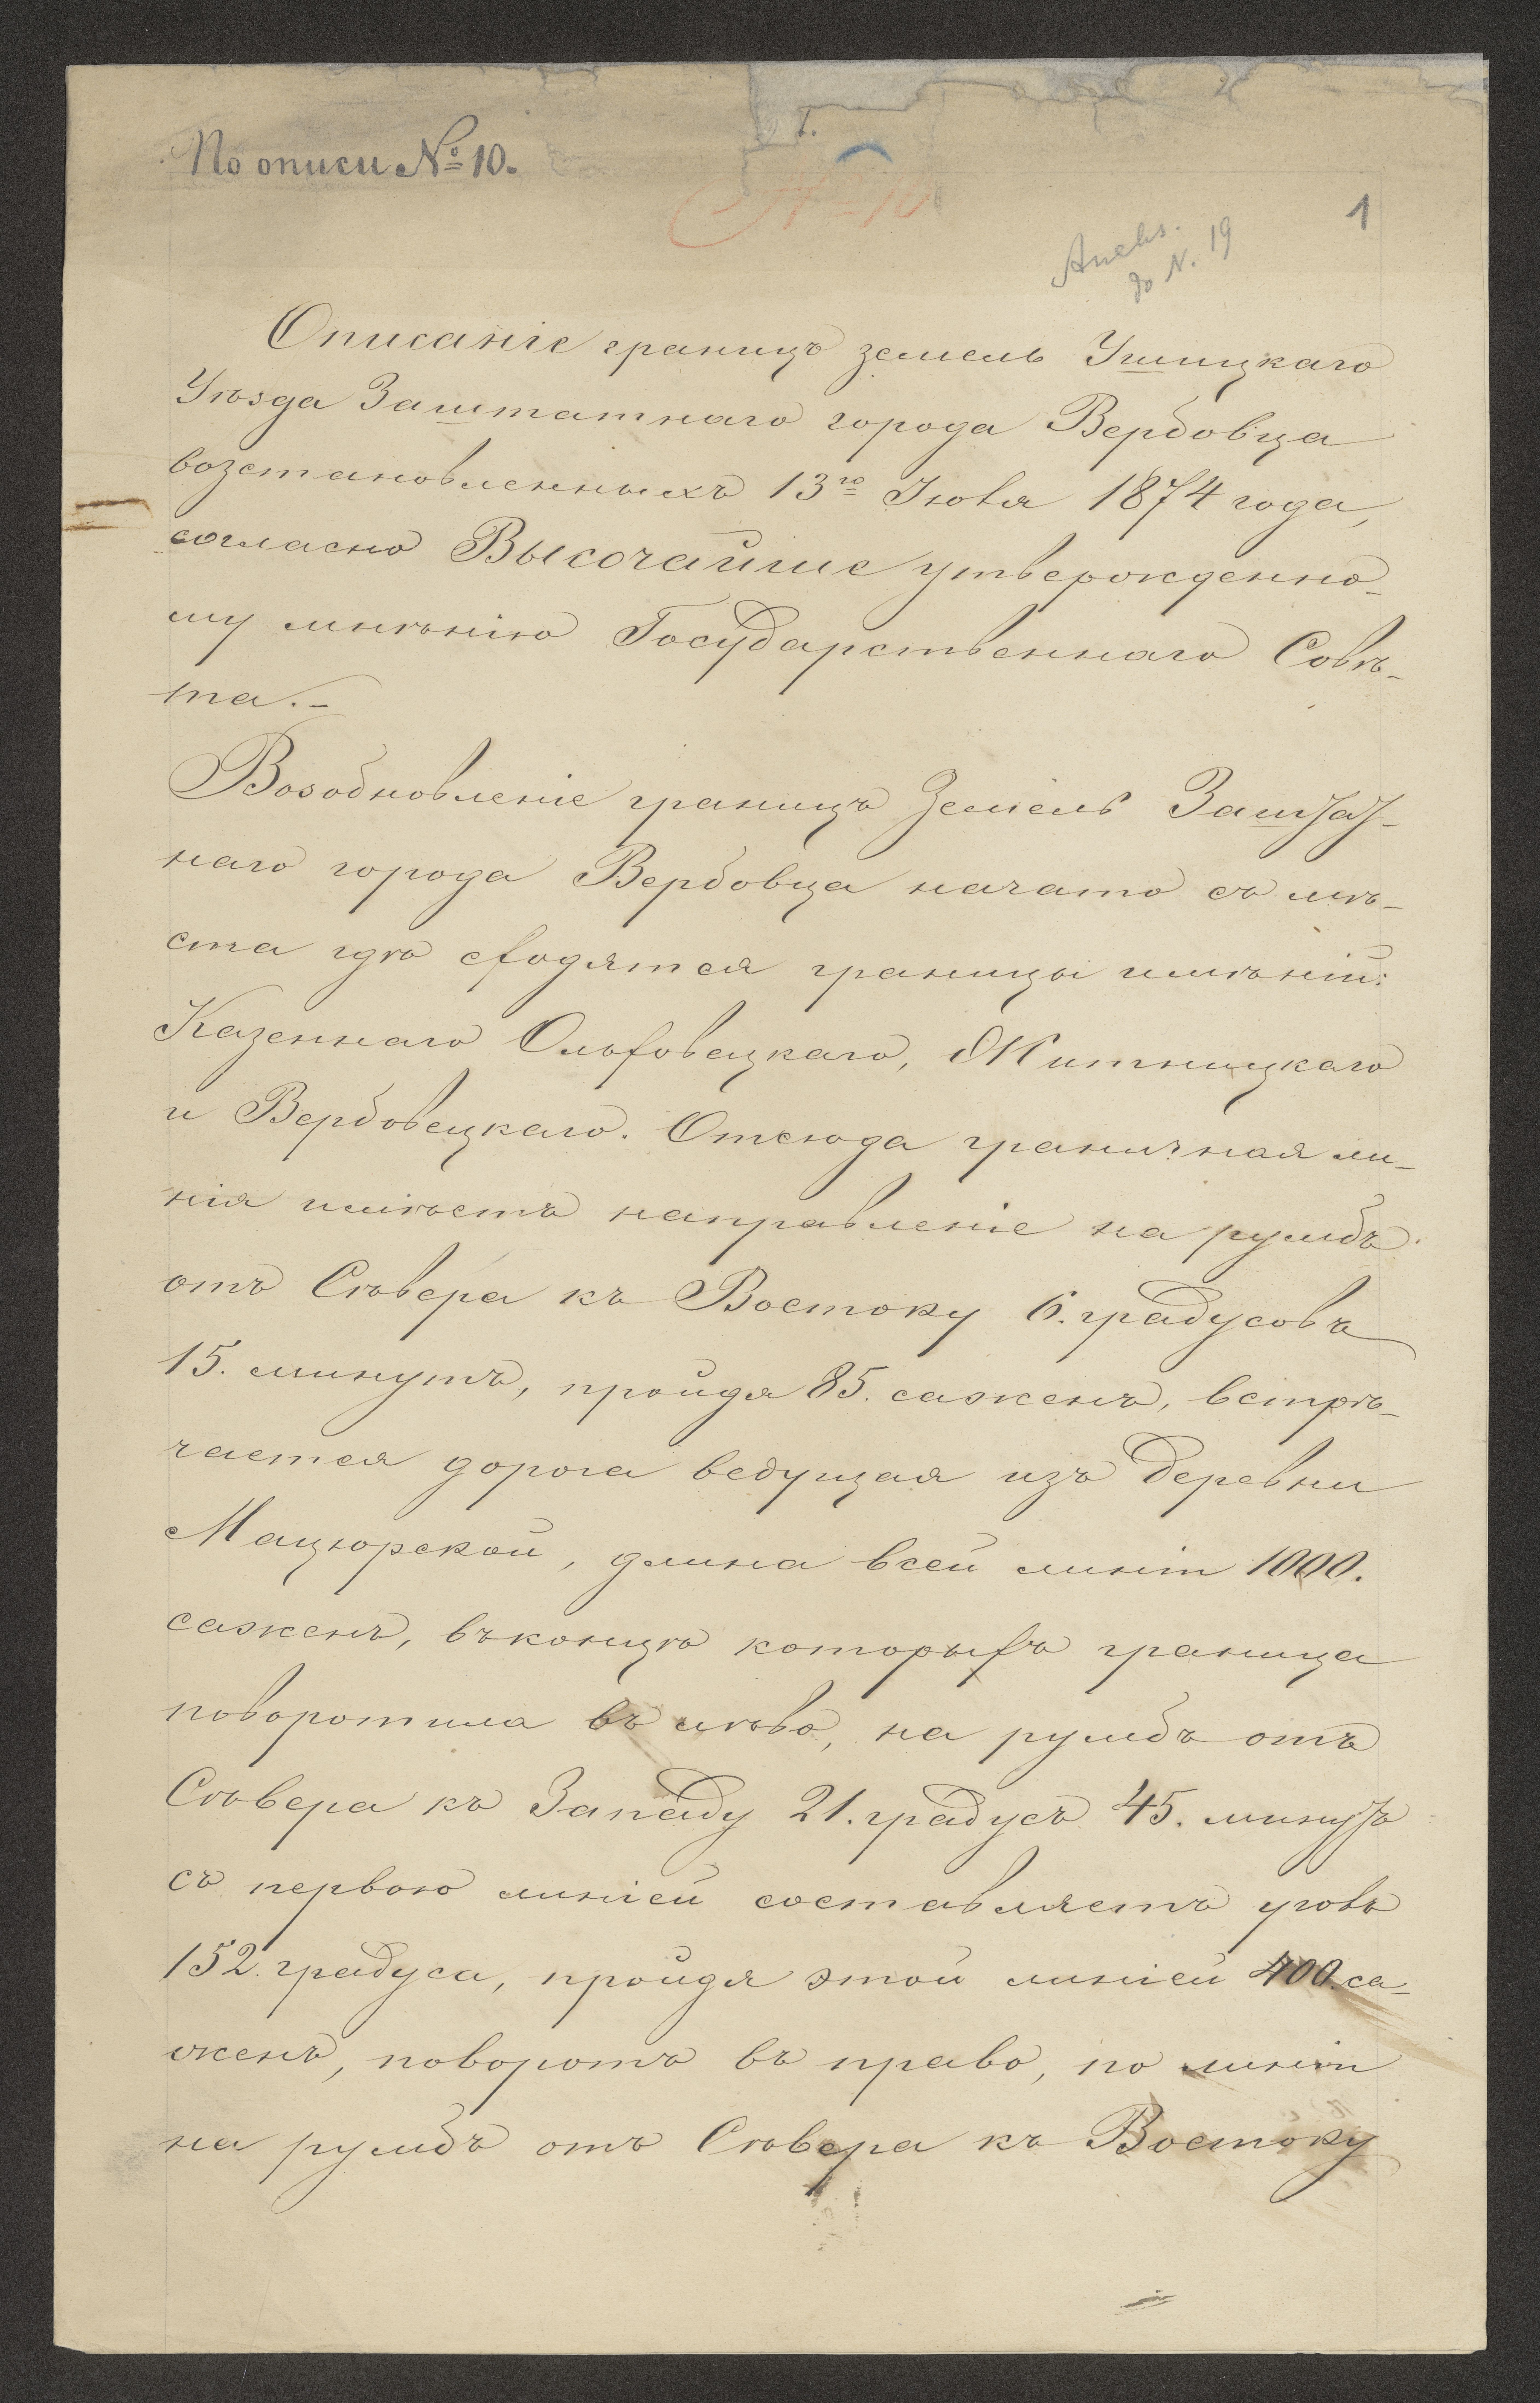 По описи № 10.
№ 10
1
Aneks.
do N. 19
Описаніе границъ земель Ушицкаго
Уѣзда Заштатнаго города Вербовца
возстановленныхъ 13го Іюля 1874 года,
согласно Высочайше утвержденно-
му мнѣнію Государственнаго Совѣ-
та.-
Возобновленіе границъ Земель Заштат-
наго города Вербовца начато съ мѣ-
ста гдѣ сходятся границы имѣній:
Казеннаго Ольховецкаго, Житницкаго
и Вербовецкаго. Отсюда граничная ли-
нія имѣетъ направленіе на румбъ
отъ Сѣвера къ Востоку 6. градусовъ
15. минутъ, пройдя 85. саженъ, встрѣ-
чается дорога ведущая изъ деревни
Мацюрской, длина всей линіи 1000.
саженъ, въ концѣ которыхъ граница
поворотила въ лѣво, на румбъ отъ
Сѣвера къ Западу 21. градусъ 45. минутъ
съ первою линіей составляетъ уголъ
152. градуса, пройдя этой линіей 400. са-
женъ, поворотъ въ право, по линіи
на румбъ отъ Сѣвера къ Востоку